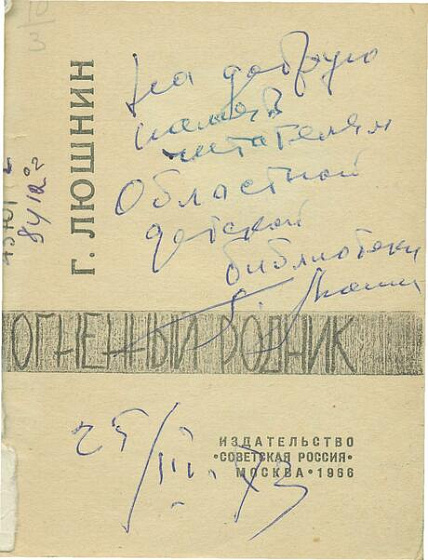 10
3
Г. ЛЮШНИН
84/12
На добрую
память
читателям
Областной
детской
библиотеки
Г. Люшнин
ОГНЕННЫЙ РОДНИК
ИЗДАТЕЛЬСТВО
«СОВЕТСКАЯ РОССИЯ»
МОСКВА • 1966
25/III-73